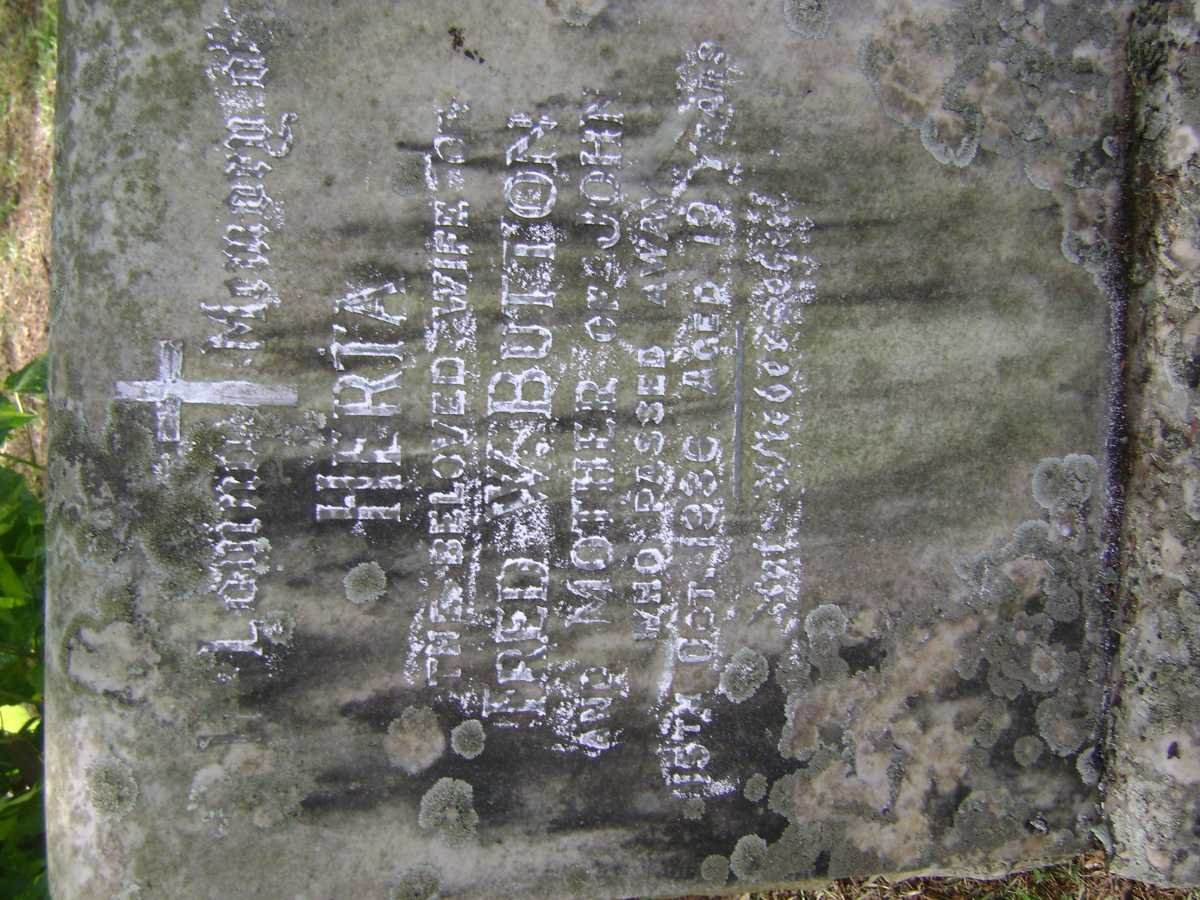 In Loving Memory of
HERTA
THE BELOVED WIFE OF
FRED W. BUTTON
AND MOTHER OF JOHN
WHO PASSED AWAY
15TH OCT. 1936 AGED 19 YEARS